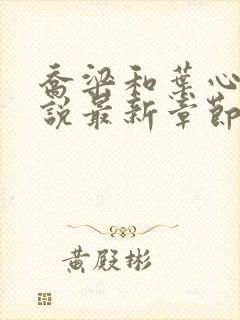 喬梁和葉心
說最新章節
黃殿彬